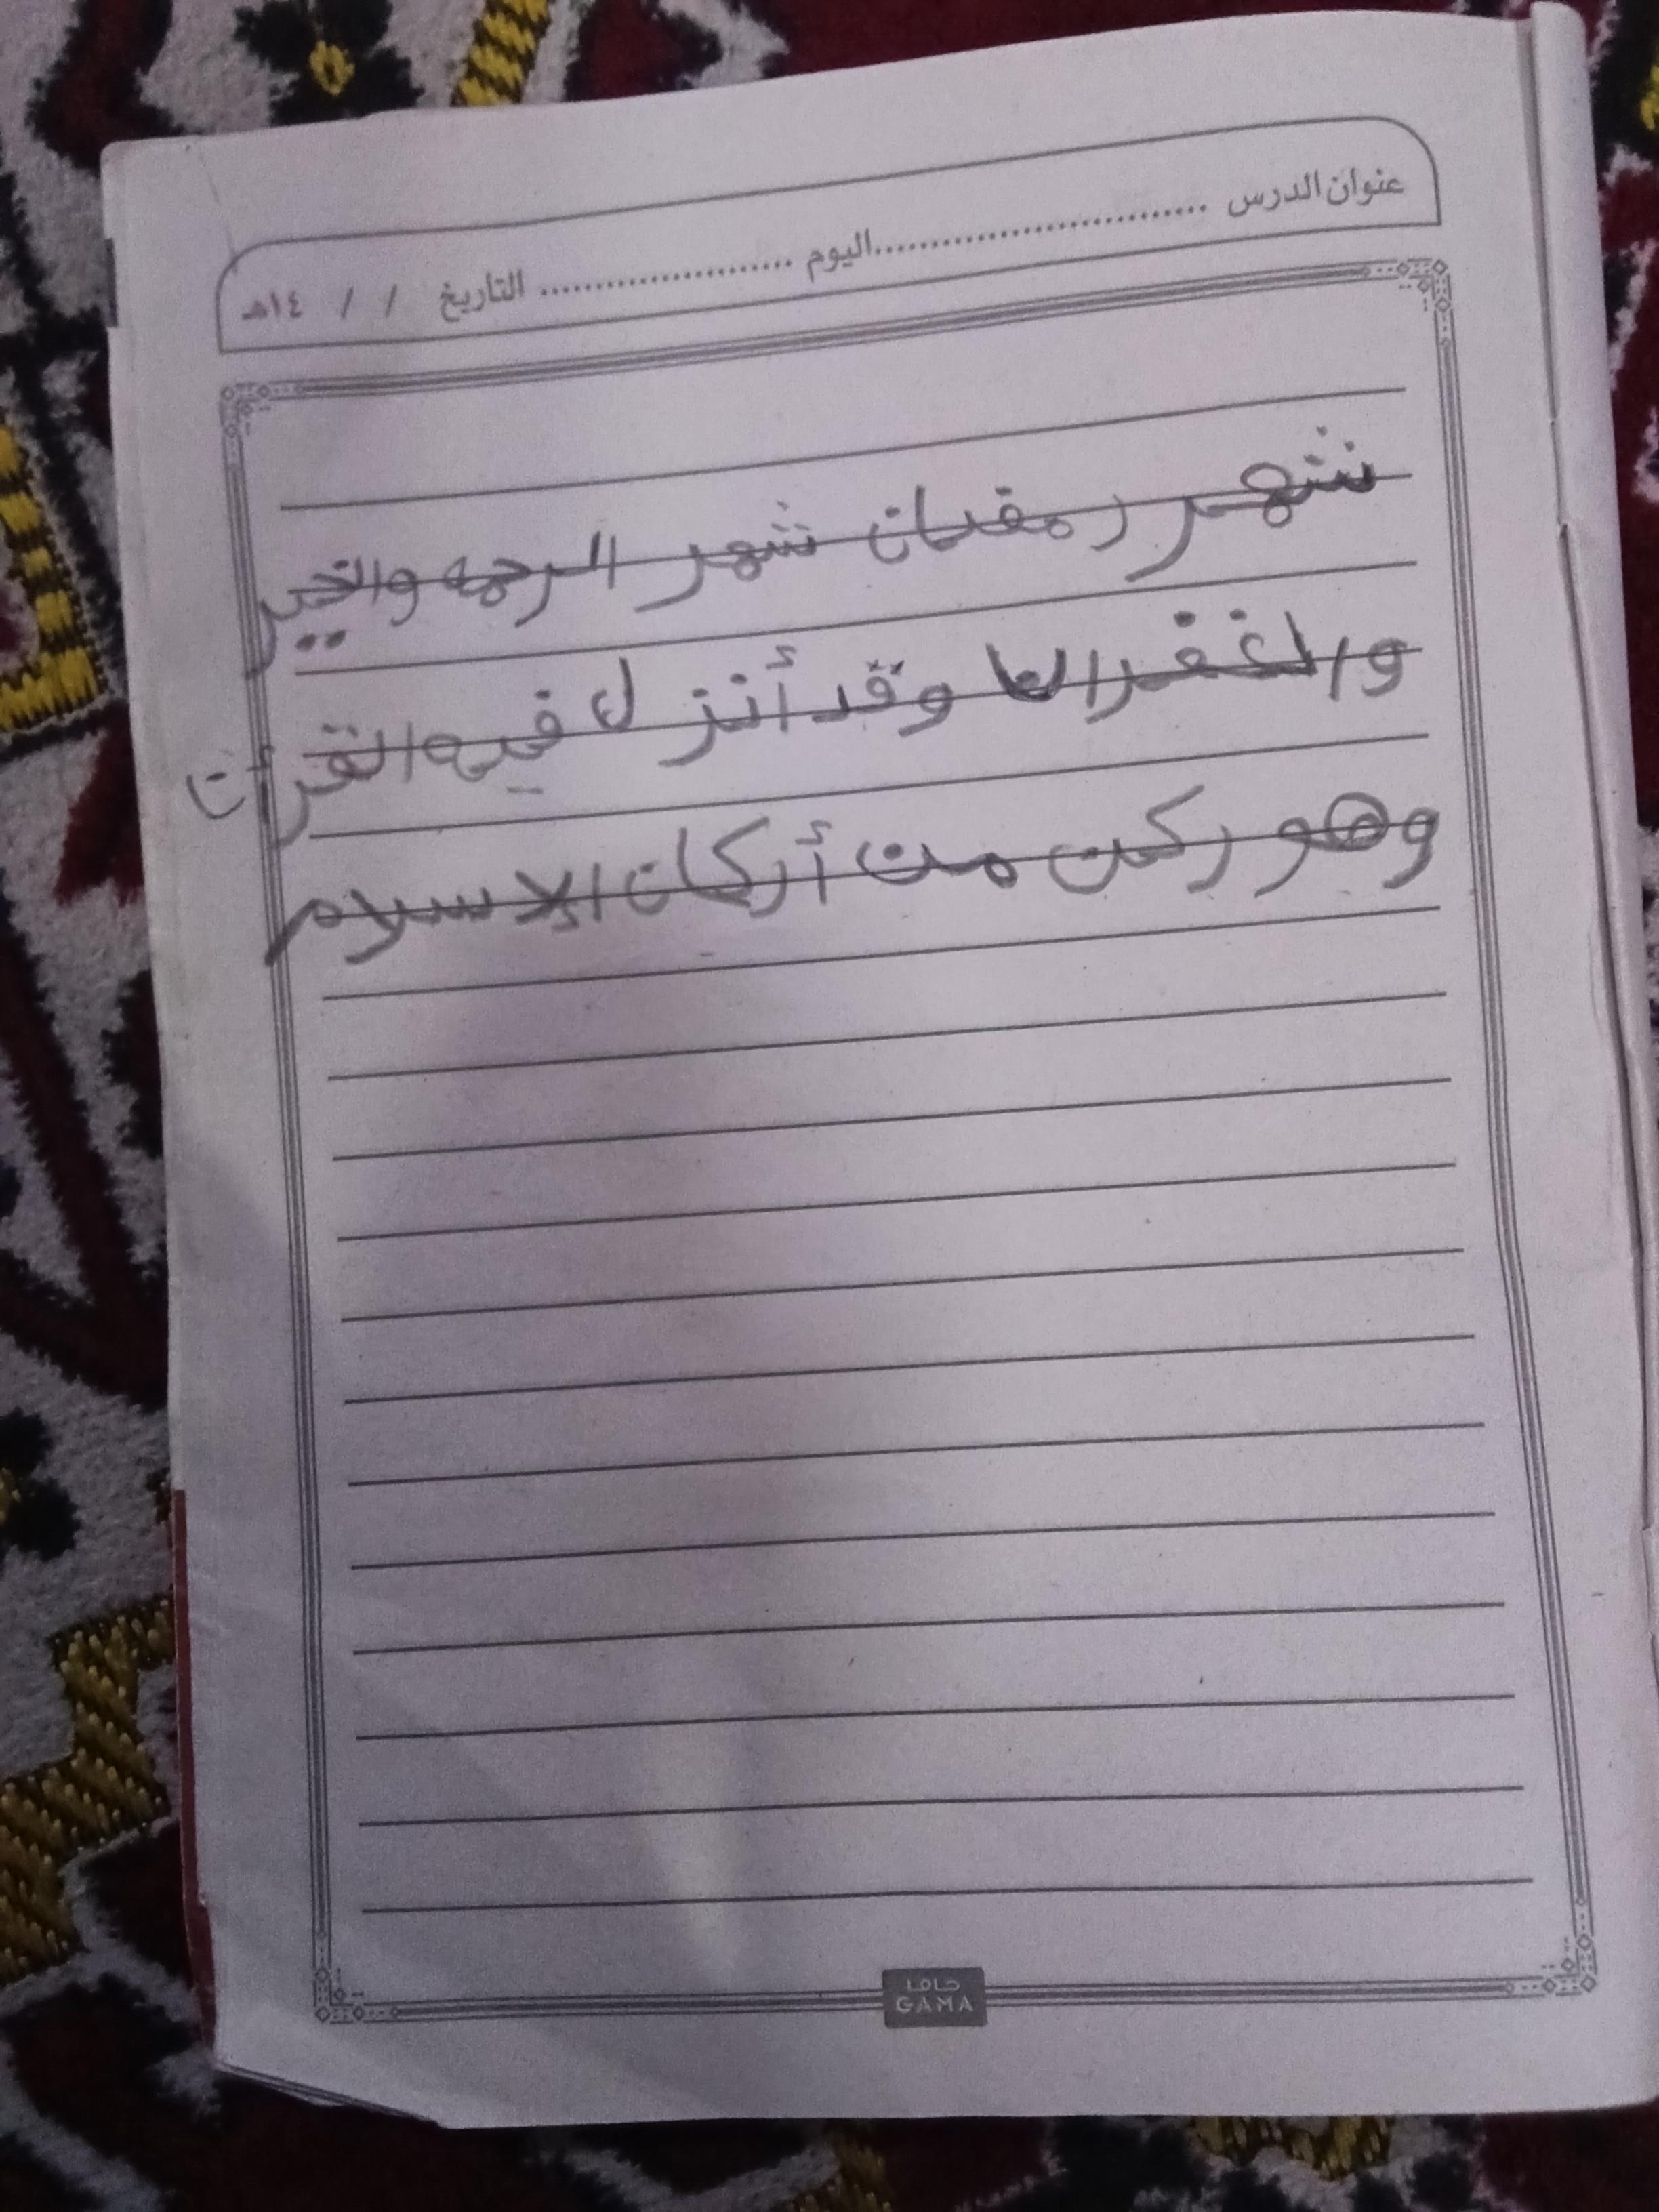 عنوان الدرس ............................ اليوم .................... التاريخ / / ١٤هـ
شهر رمضان شهر الرحمه والخير
والغفران وقد أنزل فيه القرأن
وهو ركن من أركان الإسلام
جاما
GAMA